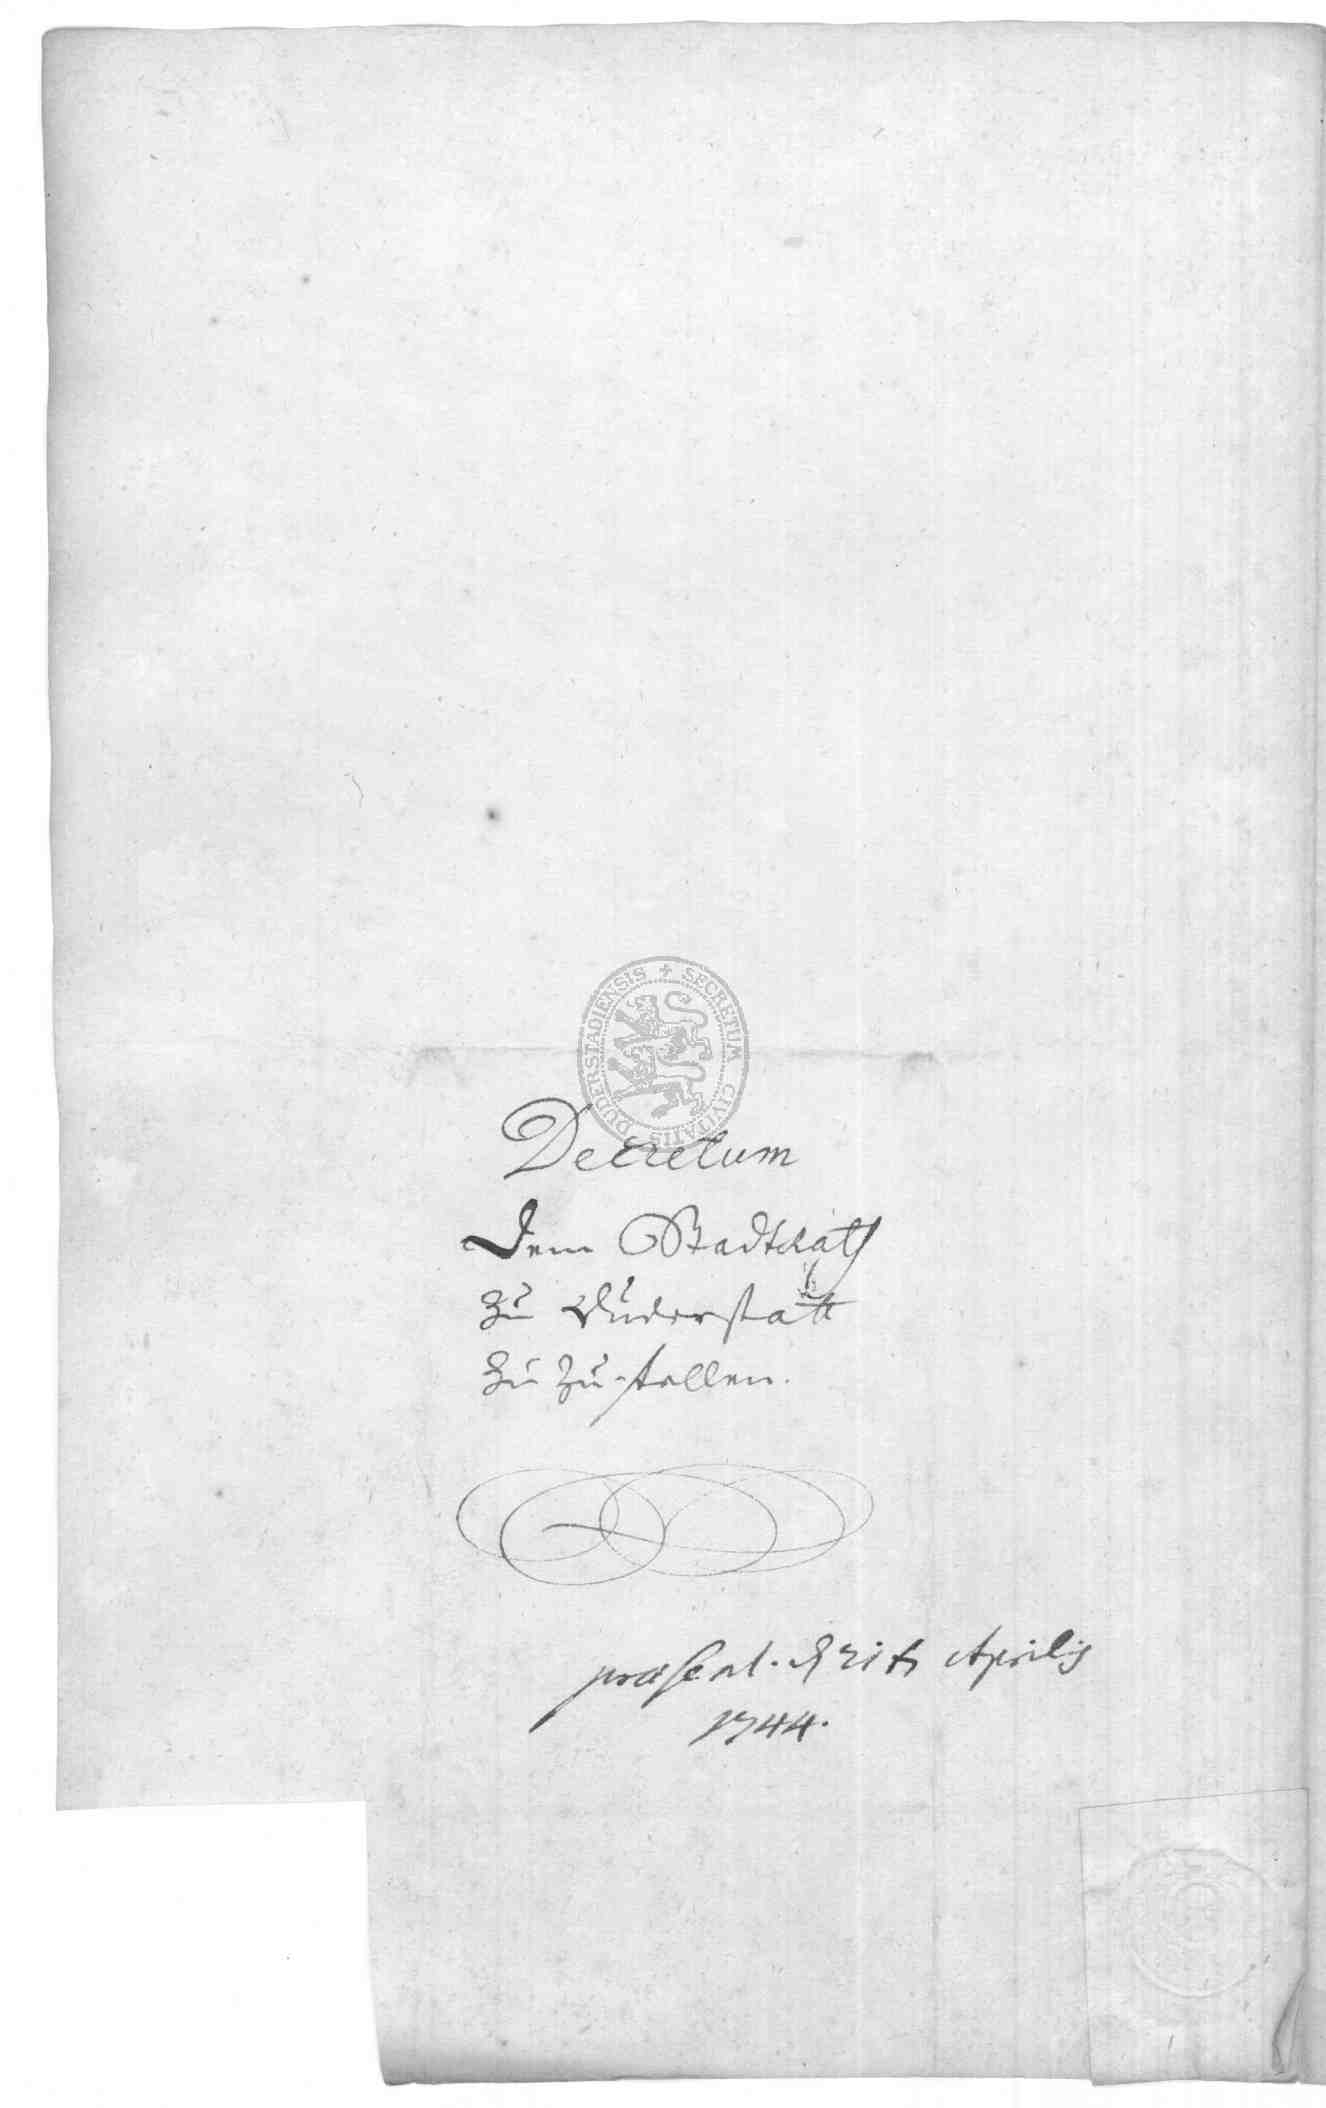 SECRETUM CIVITATIS DUDERSTADIENSIS
Decretum
dem Stadtrath
zu Duderstatt
zu zu stellen.
præsent. d 21t Aprilis
1744.